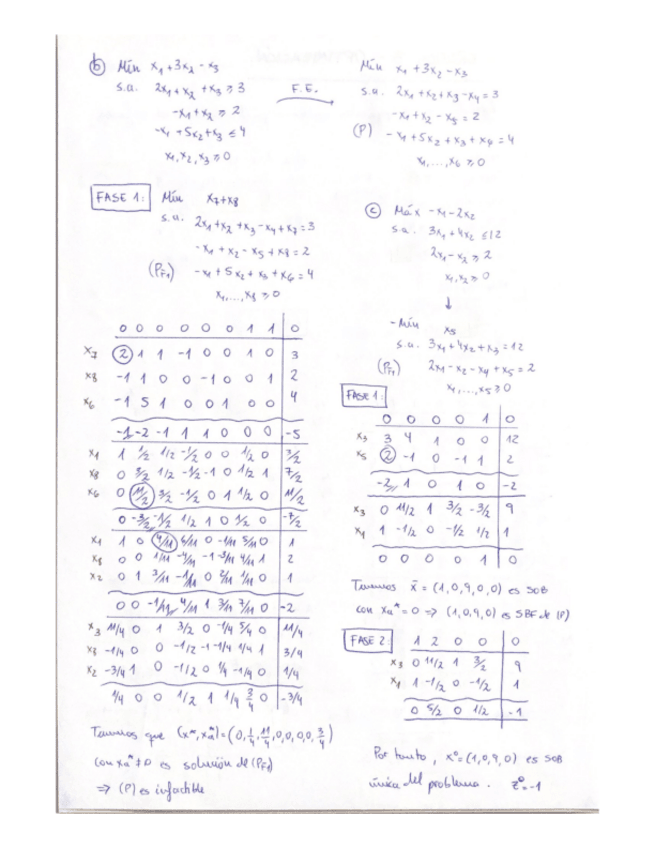 b) Mín x₁+3x₂-x₃
s.a. 2x₁+x₂+x₃ ≥ 3
-x₁+x₂ ≥ 2
-x₁+5x₂+x₃ ≤ 4
x₁,x₂,x₃ ≥ 0
F.E.
Mín x₁+3x₂-x₃
s.a. 2x₁+x₂+x₃-x₄=3
-x₁+x₂-x₅=2
(P) -x₁+5x₂+x₃+x₄=4
x₁,...,x₆ ≥ 0
FASE 1: Mín x₇+x₈
s.a. 2x₁+x₂+x₃-x₄+x₇=3
-x₁+x₂-x₅+x₈=2
(P_F1) -x₁+5x₂+x₃+x₆=4
x₁,...,x₈ ≥ 0
0 0 0 0 0 0 1 1 0
x₇ 2 1 1 -1 0 0 1 0 3
x₈ -1 1 0 0 -1 0 0 1 2
x₆ -1 5 1 0 0 1 0 0 4
-1 -2 -1 1 1 0 0 0 -5
x₁ 1 1/2 1/2 -1/2 0 0 1/2 0 3/2
x₈ 0 3/2 1/2 -1/2 -1 0 1/2 1 7/2
x₆ 0 11/2 3/2 -1/2 0 1 1/2 0 11/2
0 -3/2 -1/2 1/2 1 0 1/2 0 -7/2
x₁ 1 0 4/11 5/11 0 -1/11 5/11 0 1
x₈ 0 0 1/11 -4/11 -1 -3/11 4/11 1 2
x₂ 0 1 3/11 -1/11 0 2/11 1/11 0 1
0 0 -1/11 4/11 1 3/11 7/11 0 -2
x₃ 11/4 0 1 3/2 0 -1/4 5/4 0 11/4
x₈ -1/4 0 0 -1/2 -1 -1/4 1/4 1 3/4
x₂ -3/4 1 0 -1/2 0 1/4 -1/4 0 1/4
1/4 0 0 1/2 1 1/4 3/4 0 -3/4
Tenemos que (x*,xa*)=(0,1/4,11/4,0,0,0,0,3/4)
con xa*≠0 es solución de (P_F1)
⇒ (P) es infactible
c) Máx -x₁-2x₂
s.a. 3x₁+4x₂ ≤ 12
2x₁-x₂ ≥ 2
x₁,x₂ ≥ 0
↓
-Mín x₅
s.a. 3x₁+4x₂+x₃=12
(P_F1) 2x₁-x₂-x₄+x₅=2
x₁,...,x₅ ≥ 0
FASE 1:
0 0 0 0 1 0
x₃ 3 4 1 0 0 12
x₅ 2 -1 0 -1 1 2
-2 1 0 1 0 -2
x₃ 0 11/2 1 3/2 -3/2 9
x₁ 1 -1/2 0 -1/2 1/2 1
0 0 0 0 1 0
Tenemos x̄=(1,0,9,0,0) es SOB
con xa*=0 ⇒ (1,0,9,0) es SBF de (P)
FASE 2:
1 2 0 0 0
x₃ 0 11/2 1 3/2 9
x₁ 1 -1/2 0 -1/2 1
0 5/2 0 1/2 -1
Por tanto, x⁰=(1,0,9,0) es SOB
única del problema. z⁰=-1